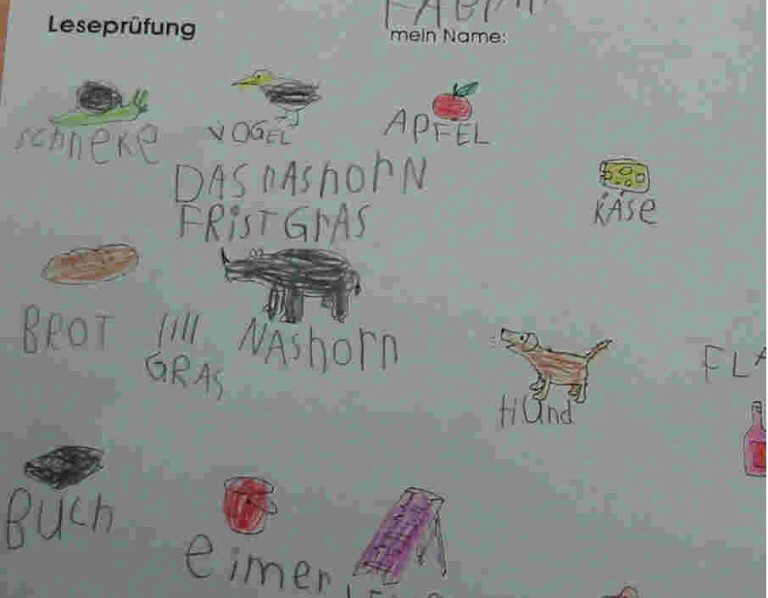 Leseprüfung
mein Name:
schneke
VOGEL
APFEL
DAS nAShorN
FRiST GrAS
KÄSe
BROT
GRAS
NAShorn
HUnd
BUCH
eimer